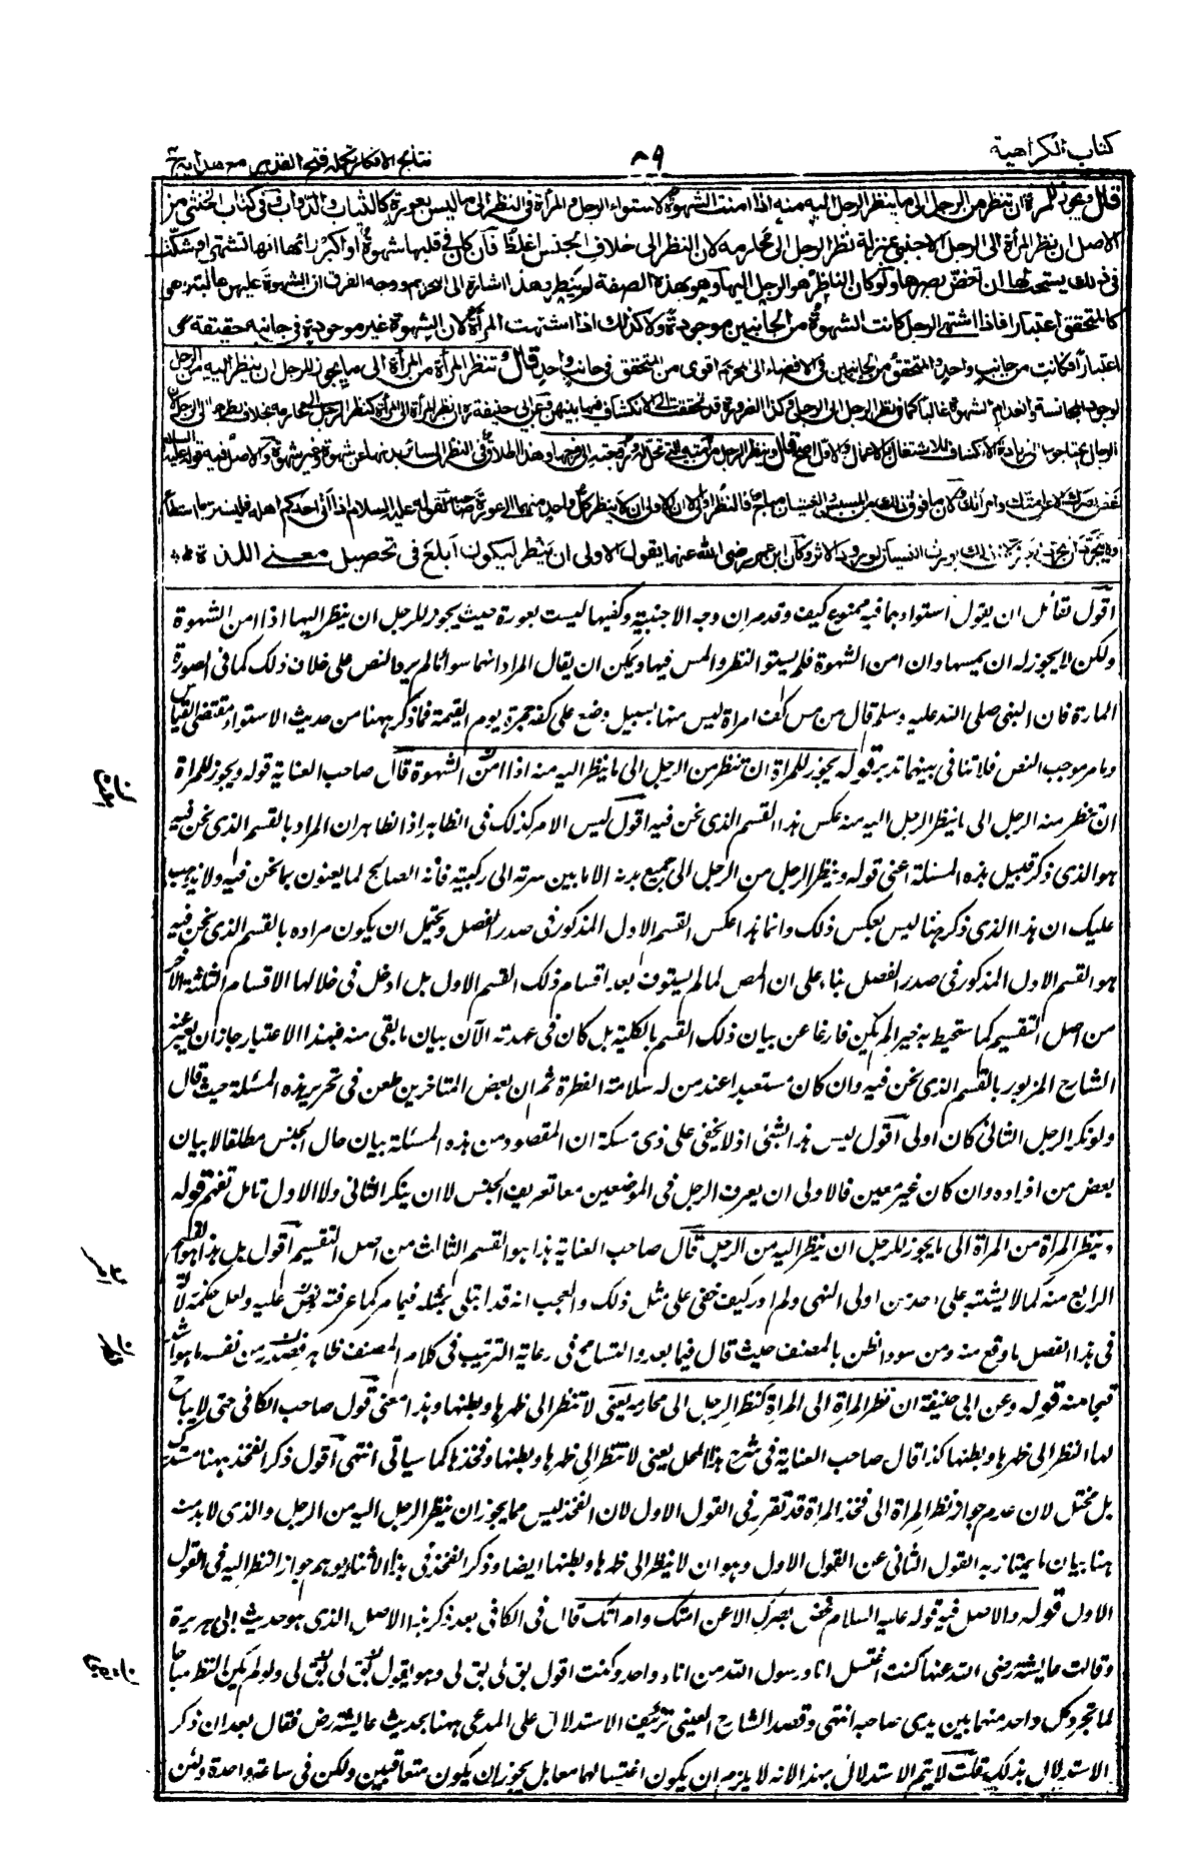 كتاب الكراهية
٨٩
نتائج الافكار تكملة فتح القدير مع هداية
قال ويجوز للمرأة ان تنظر من الرجل الى ما ينظر الرجل اليه منه اذا امنت الشهوة لاستواء الرجل والمرأة في النظر الى ما ليس بعورة كالثياب والدواب وفي كتاب الخنثى من
الاصل ان نظر المرأة الى الرجل الاجنبي بمنزلة نظر الرجل الى محارمه لان النظر الى خلاف الجنس اغلظ فان كان في قلبها شهوة او اكبر رائها انها تشتهي او شكت
في ذلك يستحب لها ان تغض بصرها ولو كان الناظر هو الرجل اليها وهو بهذه الصفة لم ينظر وهذا اشارة الى التحريم ووجه الفرق ان الشهوة عليهن غالبة وهو
كالمتحقق اعتبارا فاذا اشتهى الرجل كانت الشهوة من الجانبين موجودة ولا كذلك اذا اشتهت المرأة لان الشهوة غير موجودة في جانبه حقيقة و
اعتبارا فكانت من جانب واحد والمتحقق من الجانبين في الافضاء الى المحرم اقوى من المتحقق في جانب واحد قال وتنظر المرأة من المرأة الى ما يجوز للرجل ان ينظر اليه من الرجل
لوجود المجانسة وانعدام الشهوة غالبا كما في نظر الرجل الى الرجل وكذا الضرورة قد تحققت الى الانكشاف فيما بينهن وعن ابي حنيفة ره ان نظر المرأة الى المرأة كنظر الرجل الى محارمه بخلاف نظرها الى الرجل لان
الرجال يحتاجون الى زيادة الانكشاف للاشتغال بالاعمال والاول اصح قال وينظر الرجل من امته التي تحل له وزوجته الى فرجها وهذا اطلاق في النظر الى سائر بدنها عن شهوة وغير شهوة والاصل فيه قوله عليه السلام
غض بصرك الا عن امتك وامرأتك ولان ما فوق ذلك من المسيس والغشيان مباح فالنظر اولى الا ان الاولى ان لا ينظر كل واحد منهما الى عورة صاحبه لقوله عليه السلام اذا اتى احدكم اهله فليستتر ما استطاع
ولا يتجردان تجرد العير ولان ذلك يورث النسيان لورود الاثر وكان ابن عمر رضي الله عنهما يقول الاولى ان ينظر ليكون ابلغ في تحصيل معنى اللذة
اقول لقائل ان يقول استواؤهما فيه ممنوع كيف وقد مر ان وجه الاجنبية وكفيها ليست بعورة حيث يجوز للرجل ان ينظر اليها اذا امن الشهوة
ولكن لا يجوز له ان يمسها وان امن الشهوة فلم يستو النظر والمس فيها ويمكن ان يقال المراد انهما سواء ما لم يرد النص على خلاف ذلك كما في الصورة
المارة فان النبي صلى الله عليه وسلم قال من مس كف امراة ليس منها بسبيل وضع على كفه جمرة يوم القيمة فما ذكر ههنا من حديث الاستواء مقتضى القياس
وما مر موجب النص فلا تنافي بينهما تدبر قوله يجوز للمراة ان تنظر من الرجل الى ما ينظر اليه منه اذا امن الشهوة قال صاحب العناية قوله ويجوز للمراة
ان تنظر منه الرجل الى ما ينظر الرجل اليه منه عكس هذا القسم الذي نحن فيه اقول ليس الامر كذلك في الظاهر اذ الظاهر ان المراد بالقسم الذي نحن فيه
هو الذي ذكر قبيل هذه المسئلة اعني قوله وينظر الرجل من الرجل الى جميع بدنه الا ما بين سرته الى ركبته فانه الصالح لما يعنون بما نحن فيه ولا يذهب
عليك ان هذا الذي ذكر ههنا ليس بعكس ذلك وانما هذا عكس القسم الاول المذكور في صدر الفصل ويحتمل ان يكون مراده بالقسم الذي نحن فيه
هو القسم الاول المذكور في صدر الفصل بناء على ان المص لما لم يستوف بعد اقسام ذلك القسم الاول بل ادخل في خلالها الاقسام الثلثة الاخر
من اصل التقسيم كما ستحيط به خبرا لم يكن فارغا عن بيان ذلك القسم بالكلية بل كان في عهدته الآن بيان ما بقي منه فبهذا الاعتبار جاز ان يعبر عنه
الشارح المزبور بالقسم الذي نحن فيه وان كان مستبعدا عند من له سلامة الفطرة ثم ان بعض المتاخرين طعن في تحرير هذه المسئلة حيث قال
ولو نكر الرجل الثاني كان اولى اقول ليس هذا بشئ اذ لا يخفى على ذي مسكة ان المقصود من هذه المسئلة بيان حال الجنس مطلقا لا بيان
بعض من افراده وان كان غير معين فالاولى ان يعرف الرجل في الموضعين معا تعريف الجنس لا ان ينكر الثاني ولا الاول تامل تفهم قوله
وتنظر المراة من المراة الى ما يجوز للرجل ان ينظر اليه من الرجل قال صاحب العناية هذا هو القسم الثالث من اصل التقسيم اقول بل هذا هو القسم
الرابع منه كما لا يشتبه على احد من اولى النهى ولم ادر كيف خفي على مثل ذلك والعجب انه قد ابتلي بمثله فيما مر كما عرفته ونبهت عليه ولعل حكمته
في هذا الفصل ما وقع منه ومن سوء الظن بالمصنف حيث قال فيما بعد والتسامح في رعاية الترتيب في كلام المصنف ظاهر فصدر من نفسه ما هو اشد
قبحا منه قوله وعن ابي حنيفة ان نظر المراة الى المراة كنظر الرجل الى محارمه يعني لا تنظر الى ظهرها وبطنها وهذا معنى قول صاحب الكافي حتى لا يباح
لها النظر الى ظهرها وبطنها كذا قال صاحب العناية في شرح هذا المحل يعني لا تنظر الى ظهرها وبطنها وفخذها كما سياتي انتهى اقول ذكر الفخذ ههنا مستدرك
بل مختل لان عدم جواز نظر المراة الى فخذ المراة قد تقرر في القول الاول لان الفخذ ليس مما يجوز ان ينظر الرجل اليه من الرجل والذي لا بد منه
ههنا بيان ما يمتاز به القول الثاني عن القول الاول وهو ان لا ينظر الى ظهرها وبطنها ايضا وذكر الفخذ في هذا الاثناء يوهم جواز النظر اليه في القول
الاول قوله والاصل فيه قوله عليه السلام غض بصرك الا عن امتك وامراتك قال في الكافي بعد ذكر هذا الاصل الذي هو حديث ابي هريرة
وقالت عايشة رضي الله عنها كنت اغتسل انا ورسول الله من اناء واحد وكنت اقول بق لي بق لي وهو يقول بق لي بق لي ولو لم يكن النظر مباحا
لما تجرد كل واحد منهما بين يدي صاحبه انتهى وقصد الشارح العيني تزييف الاستدلال على المدعى ههنا بحديث عايشة رض فقال بعد ان ذكر
الاستدلال بذلك قلت لا يتم الاستدلال بهذا لانه لا يلزم ان يكون اغتسالهما معا بل يجوز ان يكون متعاقبين ولكن في ساعة واحدة ولئن